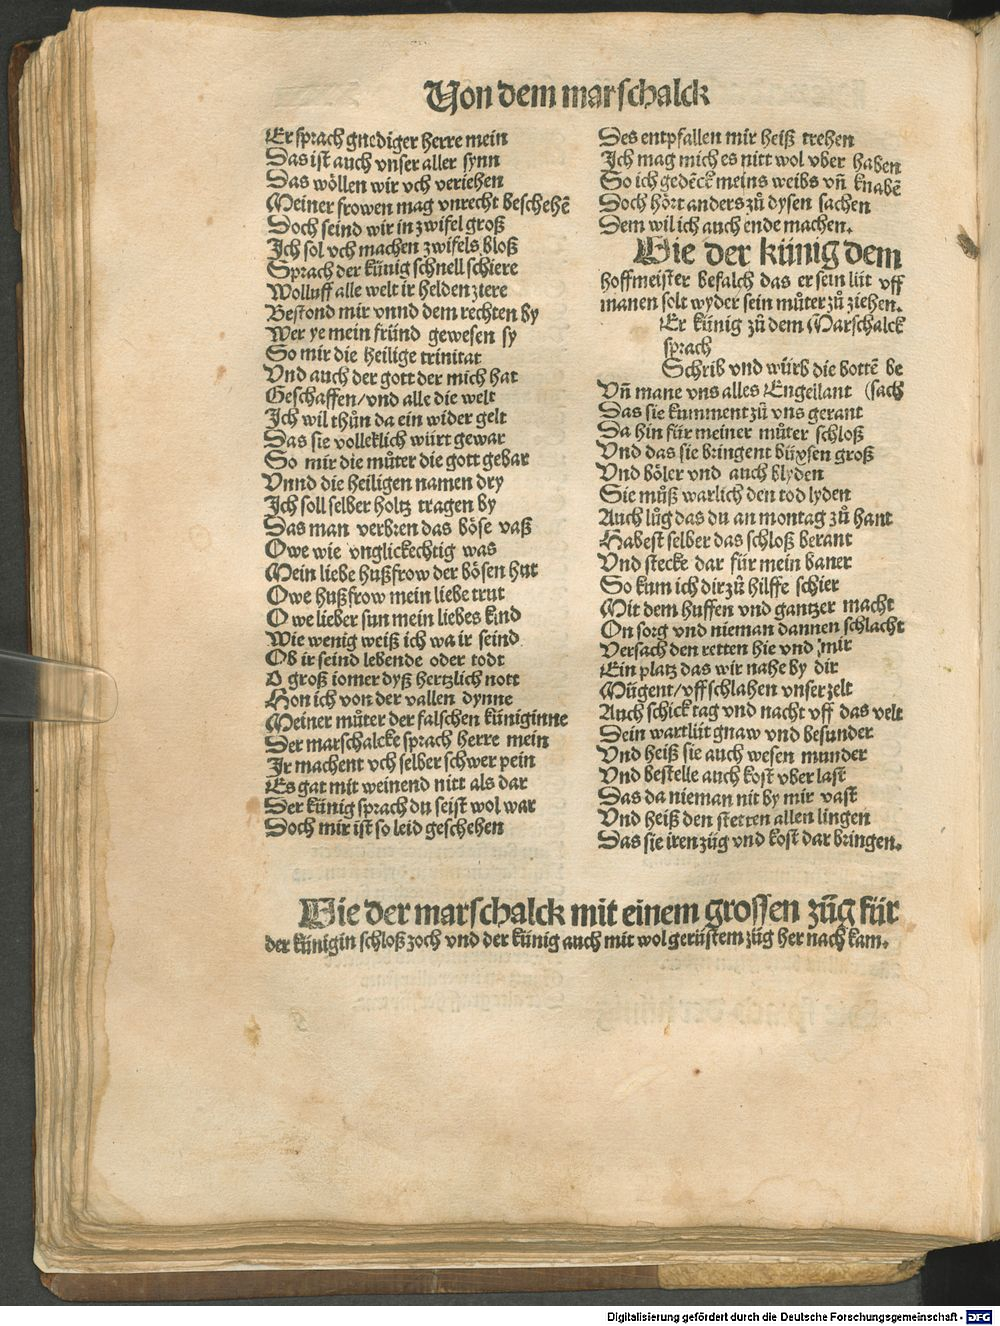 Von dem marschalck
Er sprach gnediger herre mein
Das ist auch vnser aller synn
Das wöllen wir vch veriehen
Meiner frowen mag vnrecht beschehē
Doch seind wir in zwifel groß
Ich sol vch machen zwifels bloß
Sprach der künig schnell schiere
Wolluff alle welt ir helden ziere
Bestond mir vnnd dem rechten by
Wer ye mein fründ gewesen sy
So mir die heilige trinitat
Vnd auch der gott der mich hat
Geschaffen/vnd alle die welt
Ich wil thůn da ein wider gelt
Das sie volleklich würt gewar
So mir die můter die gott gebar
Vnnd die heiligen namen dry
Ich soll selber holtz tragen by
Das man verbren das böse vaß
Owe wie vnglickechtig was
Mein liebe hußfrow der bösen hut
Owe hußfrow mein liebe trut
Owe lieber sun mein liebes kind
Wie wenig weiß ich wa ir seind
Ob ir seind lebende oder todt
O groß iomer dyß hertzlich nott
Hon ich von der vallen dynne
Meiner můter der falschen küniginne
Der marschalcke sprach herre mein
Ir machent vch selber schwer pein
Es gat mit weinend nitt als dar
Der künig sprach du seist wol war
Doch mir ist so leid geschehen
Des entpfallen mir heiß trehen
Ich mag mich es nitt wol vber haben
So ich gedēck meins weibs vñ knabē
Doch hört anders zů dysen sachen
Dem wil ich auch ende machen.
Wie der künig dem
hoffmeister befalch das er sein lüt vff
manen solt wyder sein můter zů ziehen.
Er künig zů dem Marschalck
sprach
Schrib vnd würb die bottē be
Vñ mane vns alles Engellant (sach
Das sie kumment zů vns gerant
Da hin für meiner můter schloß
Vnd das sie bringent büxsen groß
Vnd böler vnd auch blyden
Sie můß warlich den tod lyden
Auch lůg das du an montag zů hant
Habest selber das schloß berant
Vnd stecke dar für mein baner
So kum ich dir zů hilffe schier
Mit dem huffen vnd gantzer macht
On sorg vnd nieman dannen schlacht
Versach den retten hie vnd mir
Ein platz das wir nahe by dir
Mügent/vffschlahen vnser zelt
Auch schick tag vnd nacht vff das velt
Dein wartlüt gnaw vnd besunder
Vnd heiß sie auch wesen munder
Vnd bestelle auch kost vber last
Das da nieman nit by mir vast
Vnd heiß den stetten allen lingen
Das sie iren züg vnd kost dar bringen.
Wie der marschalck mit einem grossen züg für
der künigin schloß zoch vnd der künig auch mir wol gerüstem züg her nach kam.
Digitalisierung gefördert durch die Deutsche Forschungsgemeinschaft - DFG